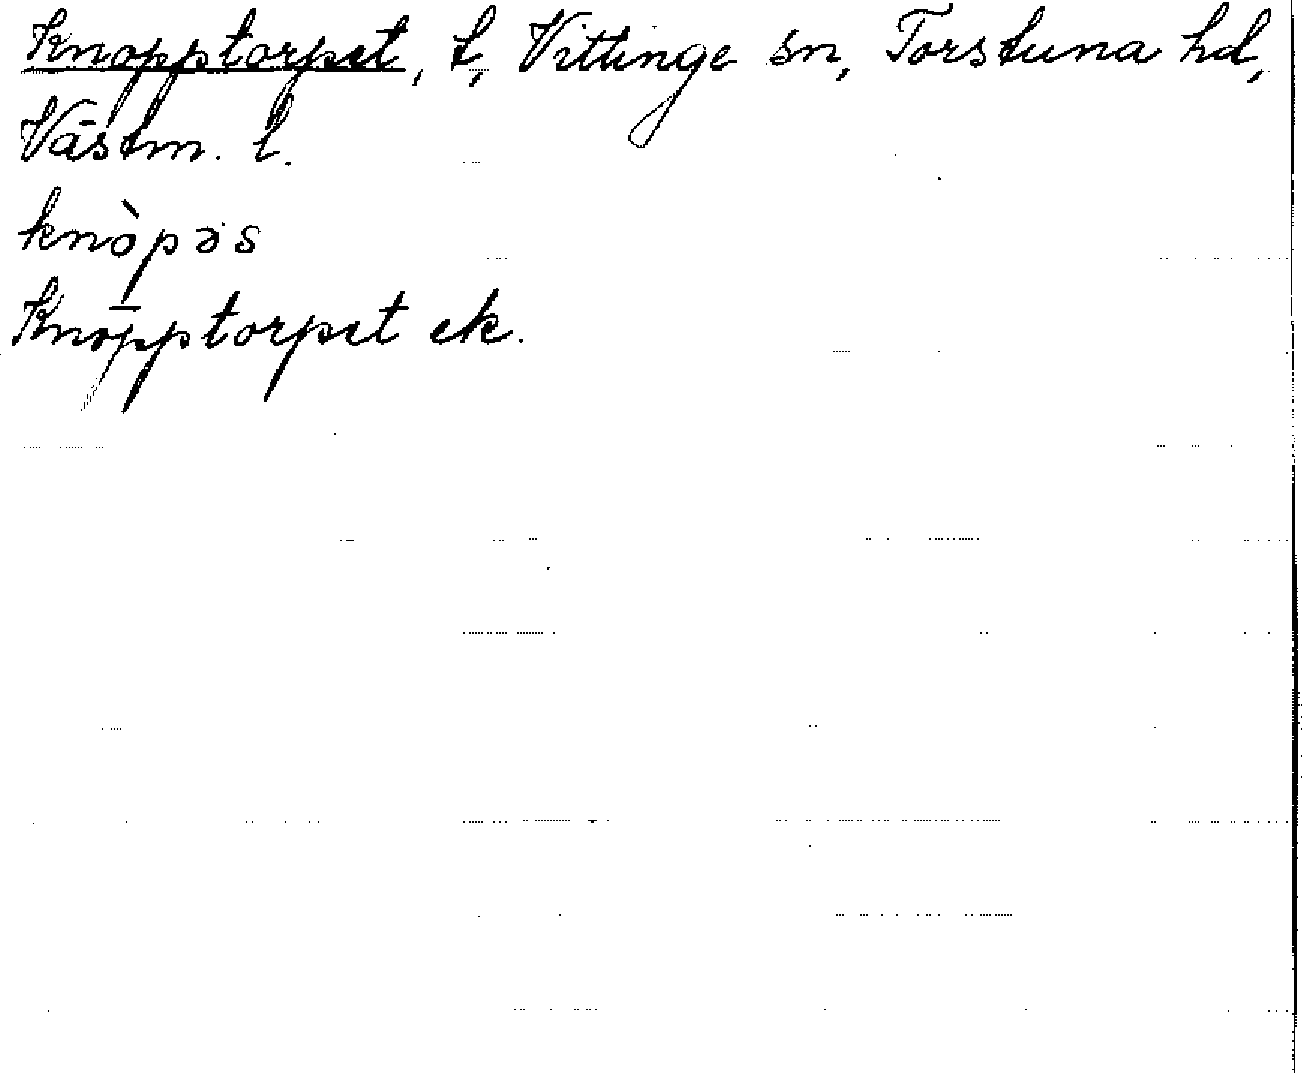 Knopptorpet, t, Vittinge sn, Torstuna hd,
Västm. l.
knòpəs
Knopptorpet ek.